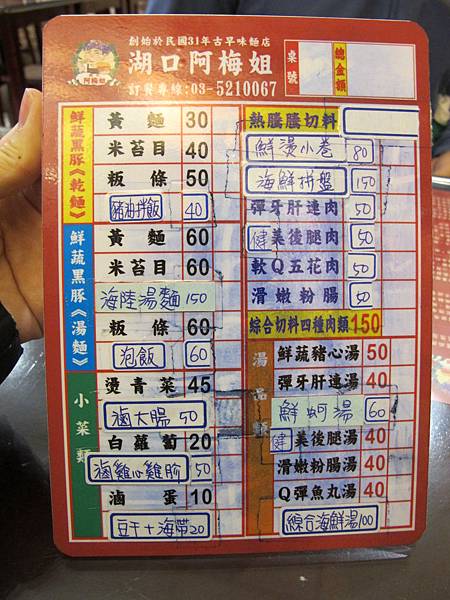 創始於民國31年古早味麵店
湖口阿梅姐
訂餐專線:03-5210067
阿梅姐
桌號
總金額
鮮蔬黑豚《乾麵》
黃麵 30
米苔目 40
粄條 50
豬油拌飯 40
鮮蔬黑豚《湯麵》
黃麵 60
米苔目 60
海陸湯麵 150
粄條 60
泡飯 60
小菜類
燙青菜 45
滷大腸 50
白蘿蔔 20
滷雞心雞胗 50
滷蛋 10
豆干+海帶20
熱騰騰切料
鮮燙小卷 80
海鮮拼盤 150
彈牙肝連肉 50
健美後腿肉 50
軟Q五花肉 50
滑嫩粉腸 50
綜合切料四種肉類150
湯品類
鮮蔬豬心湯 50
彈牙肝連湯 40
鮮蚵湯 60
健美後腿湯 40
滑嫩粉腸湯 40
Q彈魚丸湯 40
綜合海鮮湯100